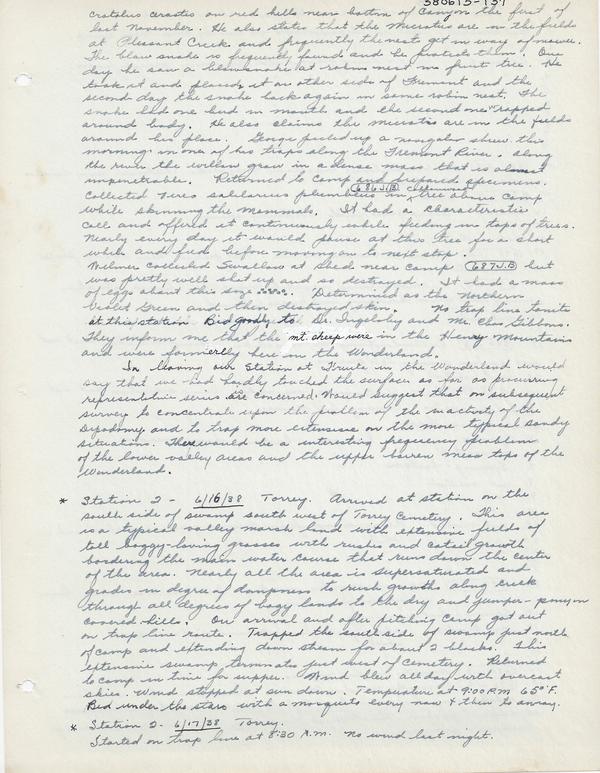 380615-137
cratalus crastis on red hills near bottom of Canyon the first of
last November. He also states that the Microtus are in the fields
at Pleasant Creek and frequently the nest get in way of mower.
The blow snake is frequently found and he protects them. One
day he saw a blowsnake at robins nest in fruit tree. He
took it and placed it on other side of Fremont and the
second day the snake back again in same robin nest. The
snake had one bird in mouth and the second one trapped
around body. He also claims the microtus are in the fields
around his place. George picked up a navigator shrew this
morning in one of his traps along the Fremont River. Along
the river the willow grow in a dense mass that is almost
impenetrable. Returned to camp and prepared specimens.
Collected Vireo solitarius plumbeus 686 J.B. in cottonwood tree above Camp
while skinning the mammals. It had a characteristic
call and offered it continuously while feeding in tops of trees.
Nearly every day it would pause at this tree for a short
while and feed before moving on to next stop.
Wilmer collected Swallow at shed near camp 687 J.B but
was pretty well shot up and so destroyed. It had a mass
of eggs about this size. Determined as the Northern
Violet Green and then destroyed skin. No trap line tonite
at this station. Bid goodby to Dr. Inglesby and Mr. Chas Gibbons.
They inform me that the mt. sheep were in the Henry Mountains
and were formierly here in the Wonderland.
In leaving our Station at Fruita in the Wonderland would
say that we had hardly touched the surface as far as procuring
representative series are concerned. Would suggest that on subsequent
survey to concentrate upon the problem of the inactivity of the
Dipodomy and to trap more extensive on the more typical sandy
situations. There would be a interesting frequency problem
of the lower valley areas and the upper barren mesa tops of the
Wonderland.
* Station 2 - 6/16/38 Torrey. Arrived at station on the
south side of swamp south west of Torrey Cemetery. This area
is a typical valley marsh land with extensive fields of
tall boggy-loving grasses with rushes and catail growth
bordering the main water course that runs down the center
of the area. Nearly all the area is supersaturated and
grades in degree of dampness to rush growths along creek
through all degrees of bogy lands to the dry and juniper-pinyon
covered hills. On arrival and after pitching camp got out
on trap line route. Trapped the south side of swamp just north
of camp and extending down stream for about 2 blocks. This
extensive swamp terminates just west of cemetery. Returned
to camp in time for supper. Wind blew all day with overcast
skies. Wind stopped at sun down. Temperature at 9:00 P.M. 65° F.
Bed under the stars with a mosquito every now & then to annoy.
* Station 2 - 6/17/38 Torrey.
Started on trap line at 8:30 A.M. No wind last night.